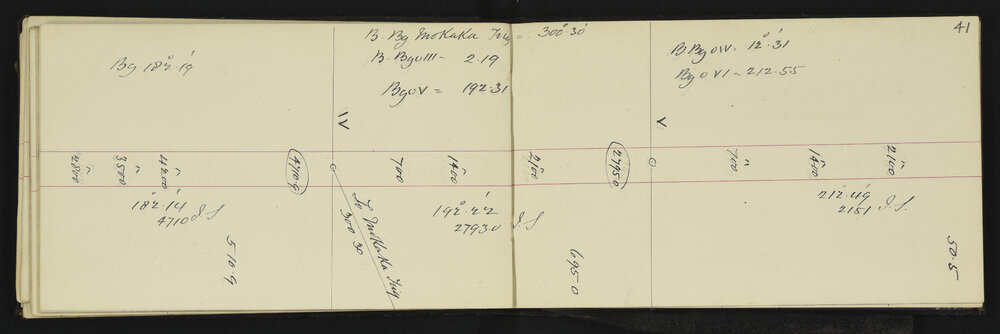 41
B. Bg Mokaka Trig = 300° 30'
B. Bg o III = 2.19
Bg o V = 192.31
Bg 182°.19'
B. Bg o IV = 12°.31'
Bg o VI = 212.55
IV
V
2800
3500
4200
4710 9
700
1400
2100
2795 0
700
1400
2100
182°.14'
4710 I.S
5 10 9
To Mokaka Trig
300.30
192°.22'
2793.0 I.S
695 0
212°.49'
2151 I.S.
50.5